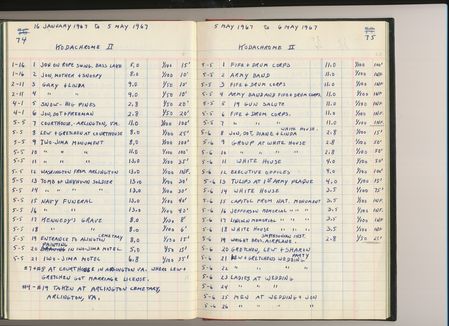 16 JANUARY 1967 to 5 MAY 1967
74
KODACHROME II
1-16 1 JON ON ROPE SWING, BASS LAKE 5.0 1/100 15'
1-16 2 JON, MOTHER + SNOOPY 8.0 1/100 10'
2-11 3 GARY + LINDA 9.0 1/50 10'
2-11 4 " " 9.0 1/50 10'
4-1 5 SNOW - BIG PINES 2.8 1/50 20'
4-1 6 JON, DOT + FREEMAN 2.8 1/50 20'
5-5 7 COURTHOUSE, ARLINGTON, VA. 11.0 1/100 100'
5-5 8 LEW + GRETCHEN AT COURTHOUSE 8.0 1/100 25'
5-5 9 IWO-JIMA MONUMENT 8.0 1/100 100'
5-5 10 " " " 11.0 1/100 100'
5-5 11 " " " 13.0 1/100 35'
5-5 12 WASHINGTON FROM ARLINGTON 13.0 1/100 INF.
5-5 13 TOMB OF UNKNOWN SOLDIER 13.0 1/100 30'
5-5 14 " " " " 13.0 1/100 30'
5-5 15 NAVY FUNERAL 13.0 1/100 40'
5-5 16 " " 13.0 1/100 40'
5-5 17 KENNEDY'S GRAVE 8.0 1/100 8'
5-5 18 " " 8.0 1/100 6'
5-5 19 ENTRANCE TO ARLINGTON CEMETARY 8.0 1/100 15'
5-5 20 PAINTING IWO-JIMA MOTEL 5.0 1/50 15'
5-5 21 IWO-JIMA MOTEL 6.8 1/100 35'
#7 + #8 AT COURTHOUSE IN ARLINGTON VA. WHERE LEW +
GRETCHEN GOT MARRIAGE LICENSE.
#9 - #19 TAKEN AT ARLINGTON CEMETARY,
ARLINGTON, VA.
5 MAY 1967 to 6 MAY 1967
75
KODACHROME II
5-5 1 FIFE + DRUM CORPS. 11.0 1/100 100'
5-5 2 ARMY BAND 11.0 1/100 INF.
5-5 3 FIFE + DRUM CORPS. 11.0 1/100 INF.
5-5 4 ARMY BAND AND FIFE + DRUM CORPS. 11.0 1/100 INF.
5-5 5 19 GUN SALUTE 11.0 1/100 INF.
5-5 6 FIFE + DRUM CORPS. 11.0 1/100 INF.
5-5 7 " " " 11.0 1/100 INF.
WHITE HOUSE.
5-6 8 JON, DOT, DIANE, + LINDA 2.8 1/100 15'
5-6 9 GROUP AT WHITE HOUSE 2.8 1/100 50'
5-6 10 " " " " 2.8 1/100 50'
5-6 11 WHITE HOUSE 4.0 1/100 50'
5-6 12 EXECUTIVE OFFICES 4.0 1/100 100'
5-6 13 TULIPS AT 1ST ARMY PLAQUE 4.0 1/100 15'
5-6 14 WHITE HOUSE 3.5 1/100 75'
5-6 15 CAPITOL FROM NAT. MONUMENT 3.5 1/100 INF.
5-6 16 JEFFERSON MEMORIAL " " " 3.5 1/100 INF.
5-6 17 LINCOLN MEMORIAL " " " 3.5 1/100 INF.
5-6 18 WHITE HOUSE " " " 3.5 1/100 INF.
5-6 19 WRIGHT BRO. AIRPLANE, SMITHSONIAN INST. 2.8 1/50 25'
5-6 20 GRETCHEN, LEW + SHARON
5-6 21 LEW + GRETCHENS WEDDING PARTY
5-6 22 " " " "
5-6 23 LADIES AT WEDDING
5-6 24 " " "
5-6 25 MEN AT WEDDING + JON
5-6 26 " " " "